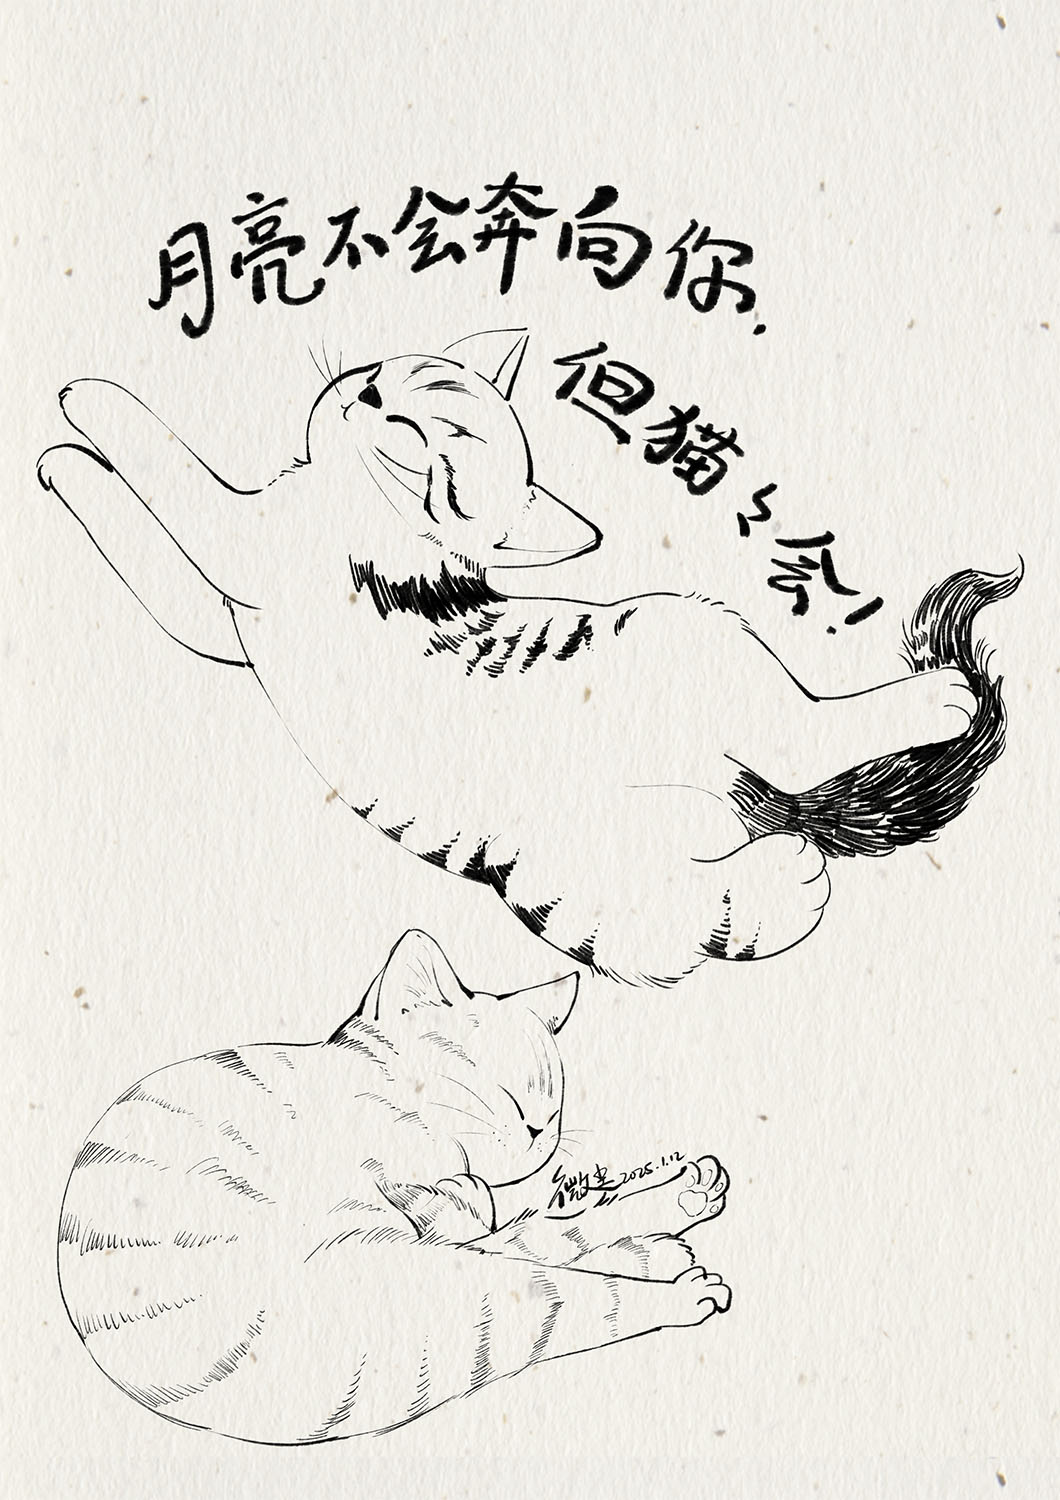 月亮不会奔向你.
但猫々会!
2025.1.12